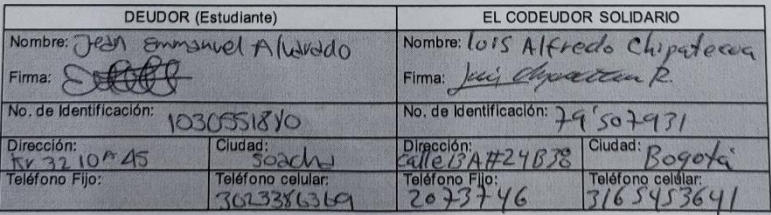 DEUDOR (Estudiante)
EL CODEUDOR SOLIDARIO
Nombre: Jean Emmanuel Alvarado
Nombre: lois Alfredo Chipatecua
Firma:
Firma: Luis Chipatecua R.
No. de Identificación: 1030551840
No. de Identificación: 79'507931
Dirección: Kr 32 10A 45
Ciudad: Soacha
Dirección: Calle 13A #24B38
Ciudad: Bogotá
Teléfono Fijo:
Teléfono celular: 3023386369
Teléfono Fijo: 2073746
Teléfono celular: 3165453641